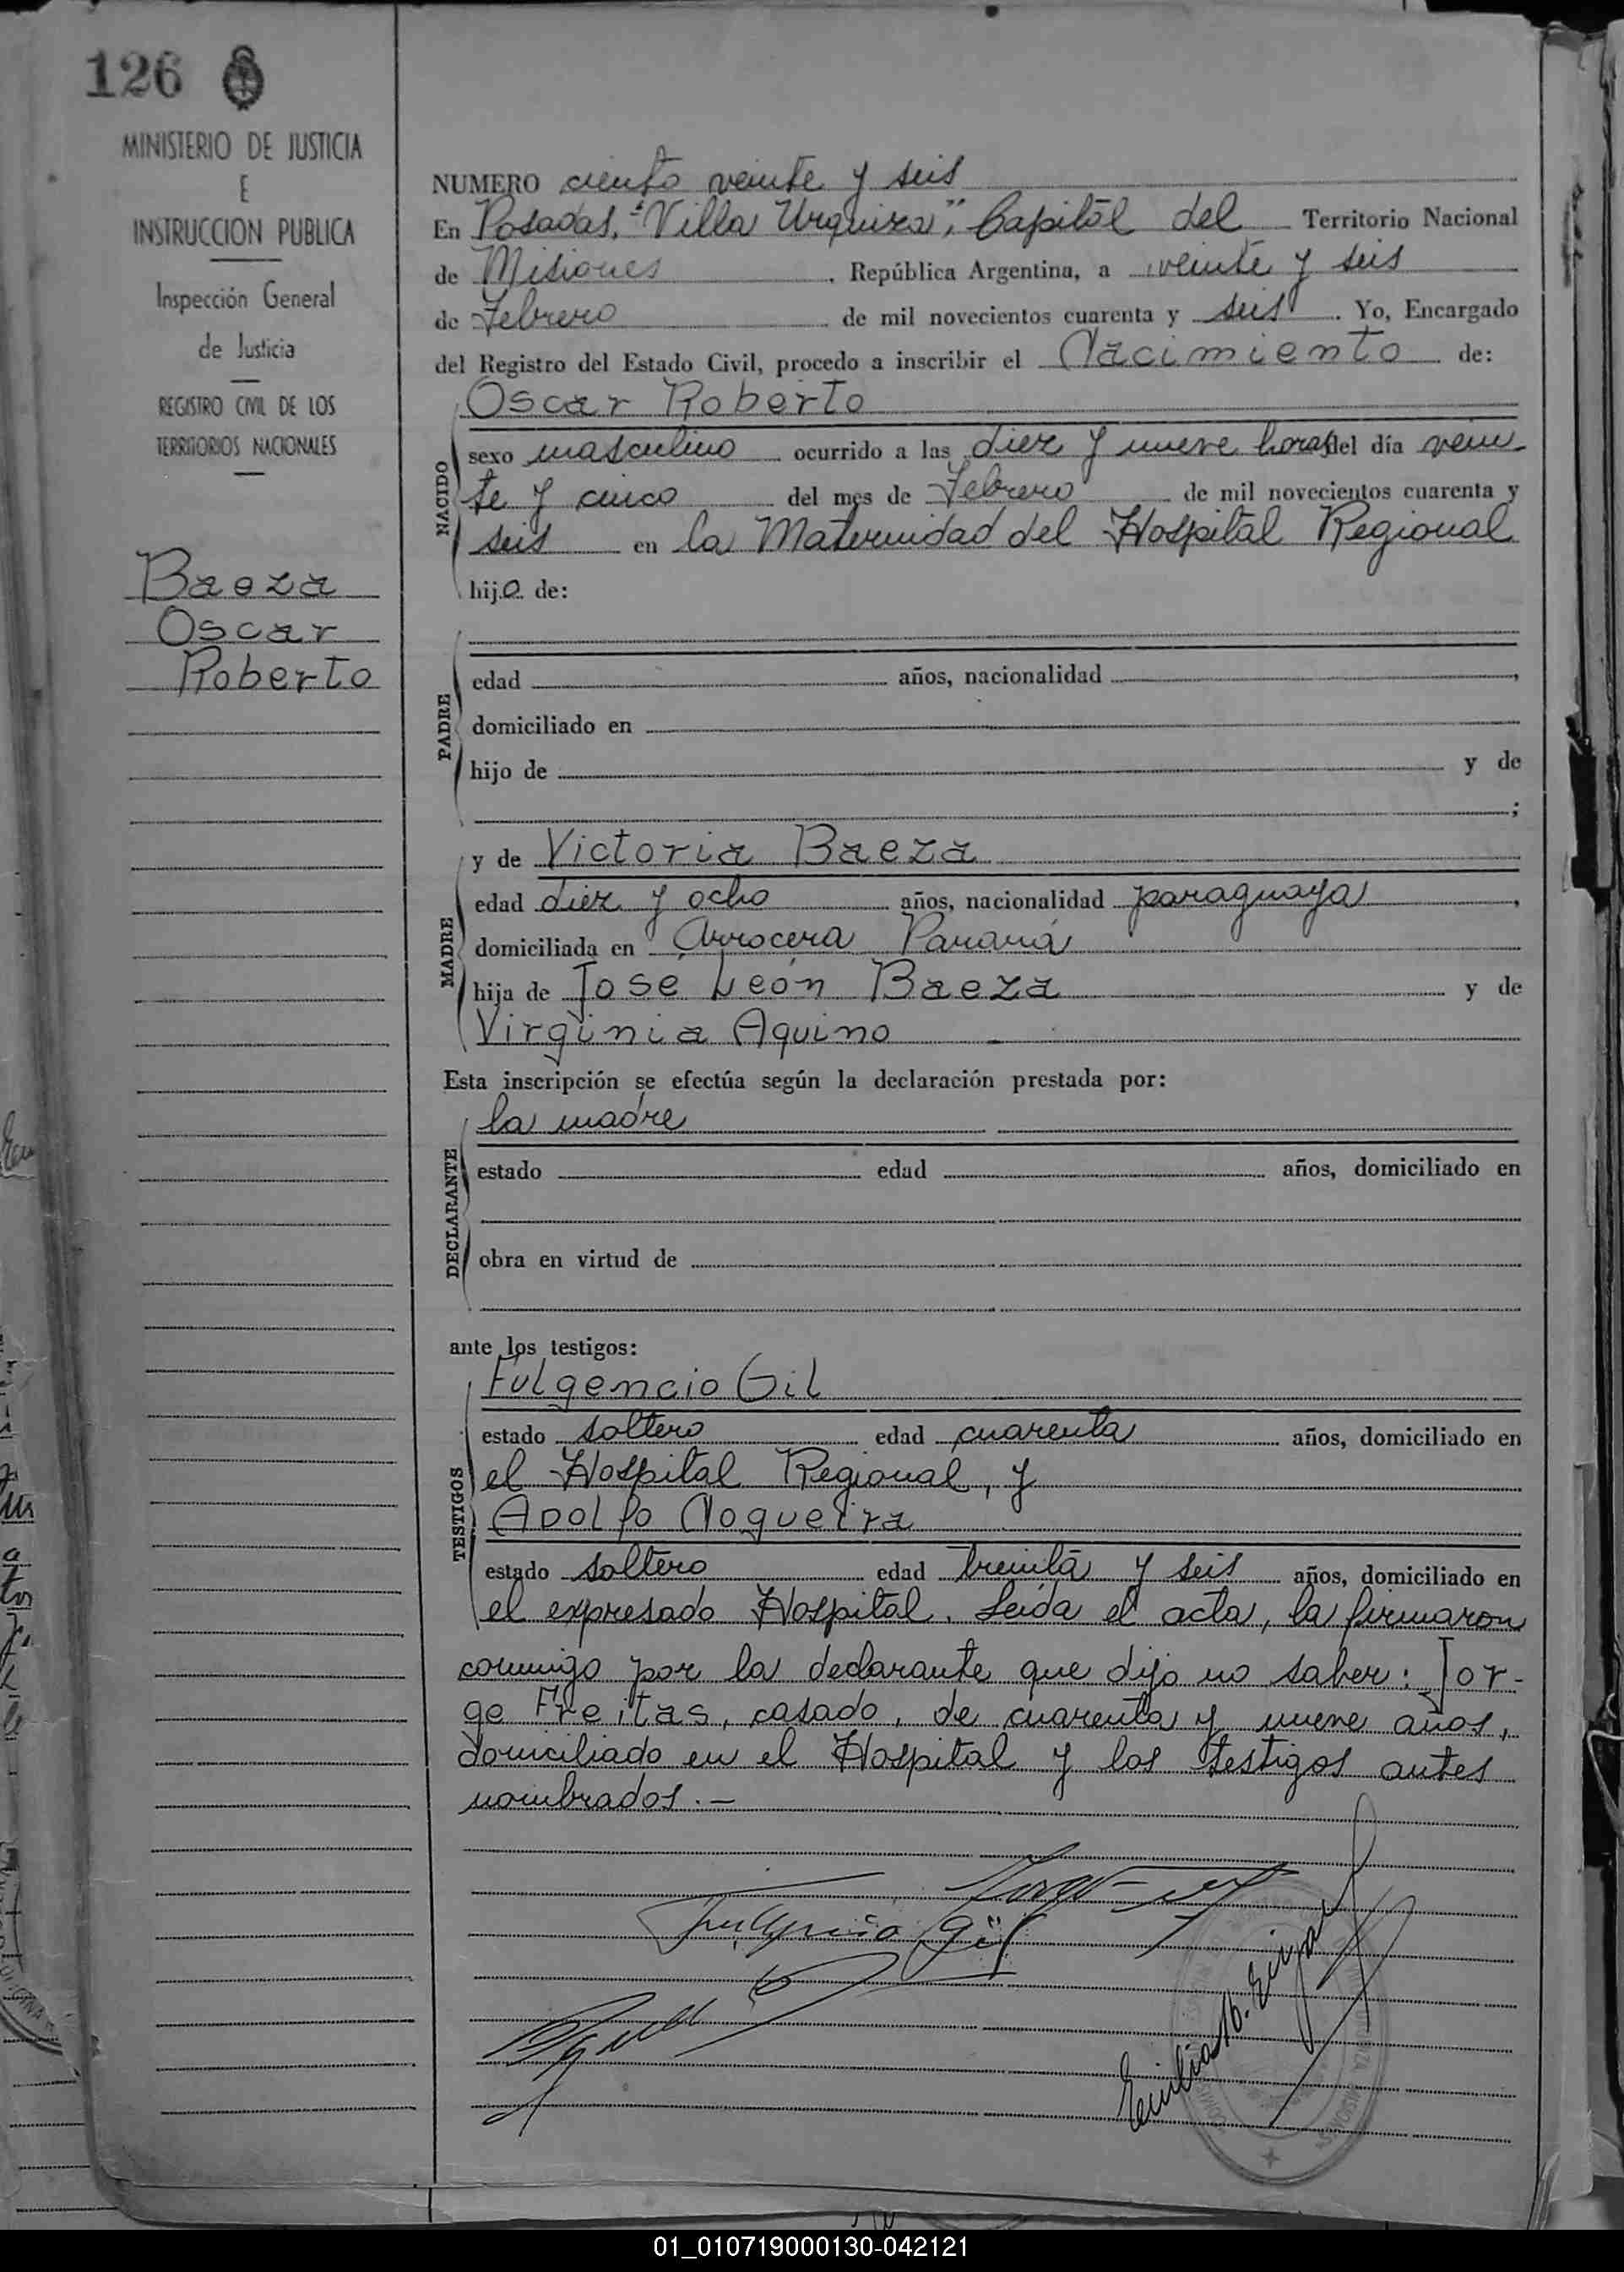 126
MINISTERIO DE JUSTICIA
E
INSTRUCCION PUBLICA
Inspección General
de Justicia
REGISTRO CIVIL DE LOS
TERRITORIOS NACIONALES
Baeza
Oscar
Roberto
NUMERO ciento veinte y seis
En Posadas, "Villa Urquiza", Capital del Territorio Nacional
de Misiones, República Argentina, a veinte y seis
de Febrero de mil novecientos cuarenta y seis. Yo, Encargado
del Registro del Estado Civil, procedo a inscribir el Nacimiento de:
Oscar Roberto
NACIDO
sexo masculino ocurrido a las diez y nueve horas del día vein-
te y cinco del mes de Febrero de mil novecientos cuarenta y
seis en la Maternidad del Hospital Regional
hijo de:
PADRE
edad años, nacionalidad ,
domiciliado en
hijo de y de
;
MADRE
y de Victoria Baeza
edad diez y ocho años, nacionalidad paraguaya,
domiciliada en Arrocera Paraná
hija de José León Baeza y de
Virginia Aquino
Esta inscripción se efectúa según la declaración prestada por:
DECLARANTE
la madre
estado edad años, domiciliado en
obra en virtud de
ante los testigos:
TESTIGOS
Fulgencio Gil
estado soltero edad cuarenta años, domiciliado en
el Hospital Regional, y
Adolfo Nogueira
estado soltero edad treinta y seis años, domiciliado en
el expresado Hospital. Leída el acta, la firmaron
conmigo por la declarante que dijo no saber: Jor-
ge Freitas, casado, de cuarenta y nueve años,
domiciliado en el Hospital y los testigos antes
nombrados.-
Fulgencio Gil
01_010719000130-042121